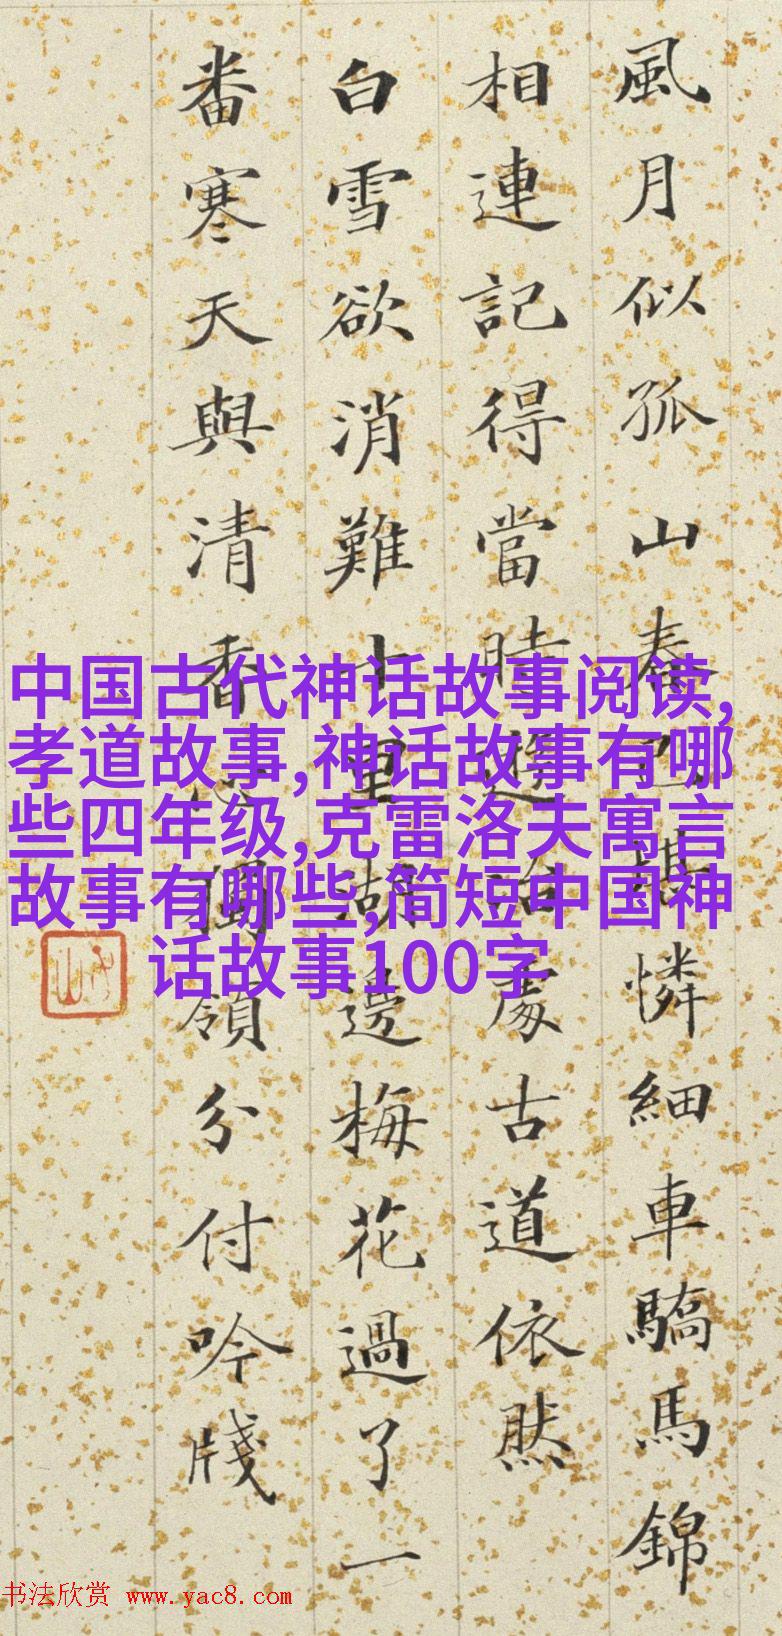 風月似孤山春已堪憐細車驕馬錦
相連記得當時遊冶處古道依然
白雪欲消難十里湖邊梅花過了一
番寒天與清香心獨領分付吟牋
中国古代神话故事阅读,
孝道故事,神话故事有哪
些四年级,克雷洛夫寓言
故事有哪些,简短中国神
话故事100字
书法欣赏 www.yac8.com